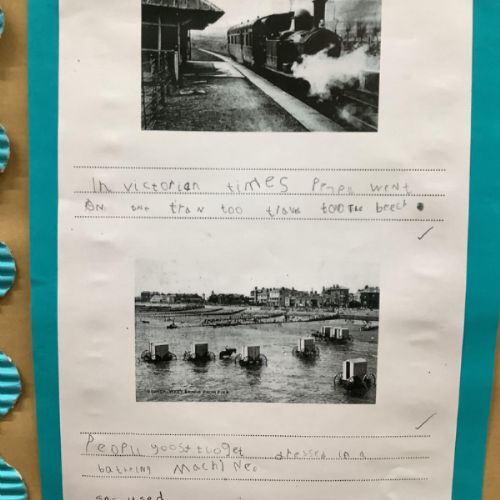 In victorian times Pepeu went
on ont tran too trava tootre beech.
Pepeu yoost tooget dressed in a
bathring Machine.